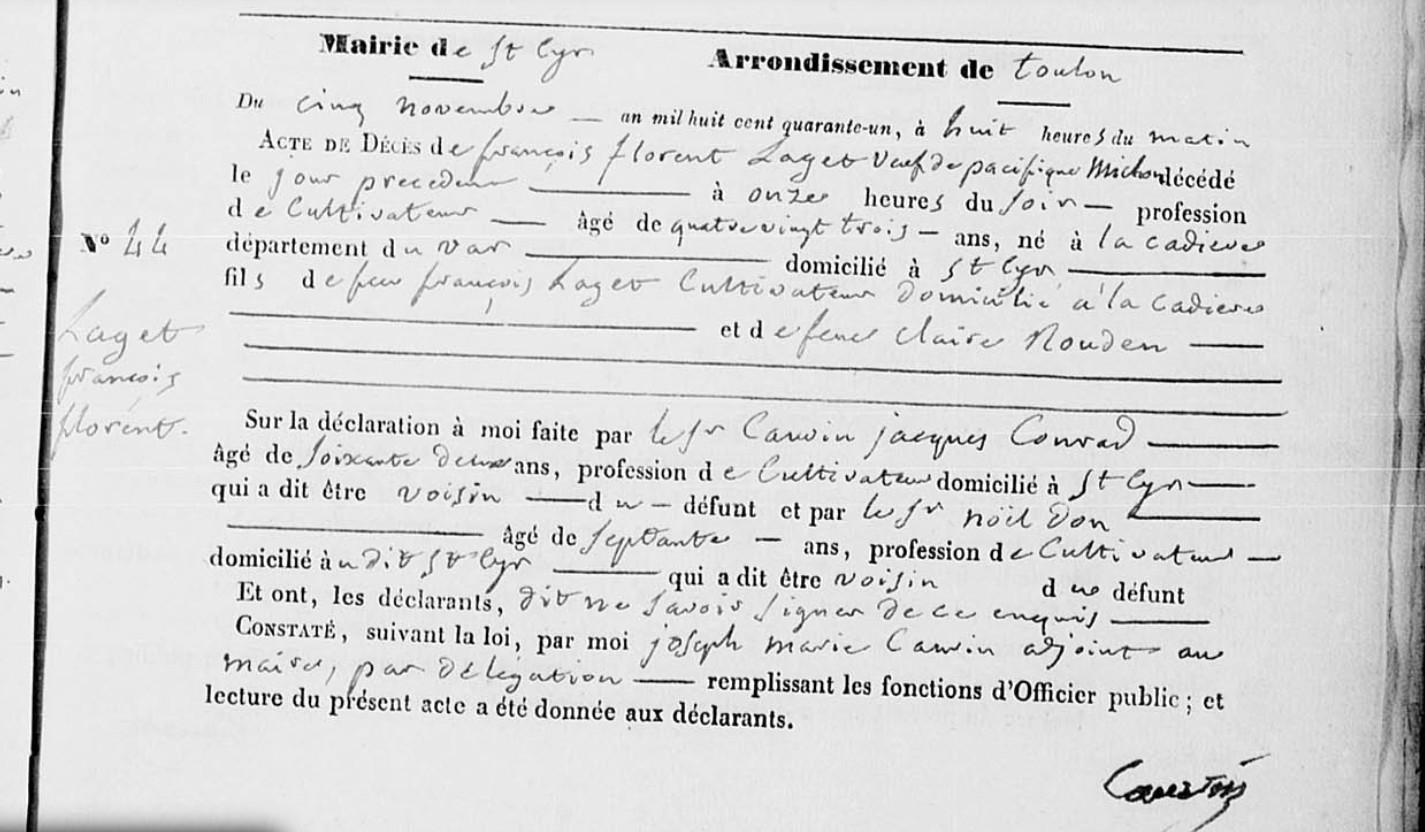 Mairie de St Cyr Arrondissement de toulon
Du cinq novembre — an mil huit cent quarante-un, à huit heures du matin
ACTE DE DÉCÈS de françois florent Laget veuf de pacifique Michon décédé
le jour precedent à onze heures du soir — profession
de Cultivateur — âgé de quatre vingt trois — ans, né à la cadiere
N° 44 département du var domicilié à St Cyr
fils de feu françois Laget Cultivateur domicilié a la cadiere
et de feue claire Rouden
Laget
françois
florent.
Sur la déclaration à moi faite par le Sr Cauvin jacques Conrad
âgé de soixante deux ans, profession de Cultivateur domicilié à St Cyr
qui a dit être voisin du défunt et par le Sr nöil Don
âgé de septante — ans, profession de Cultivateur
domicilié à u dit St Cyr qui a dit être voisin du défunt
Et ont, les déclarants, dit ne savoir signer de ce enquis
CONSTATÉ, suivant la loi, par moi joseph marie Cauvin adjoint au
maire, par délégation remplissant les fonctions d'Officier public ; et
lecture du présent acte a été donnée aux déclarants.